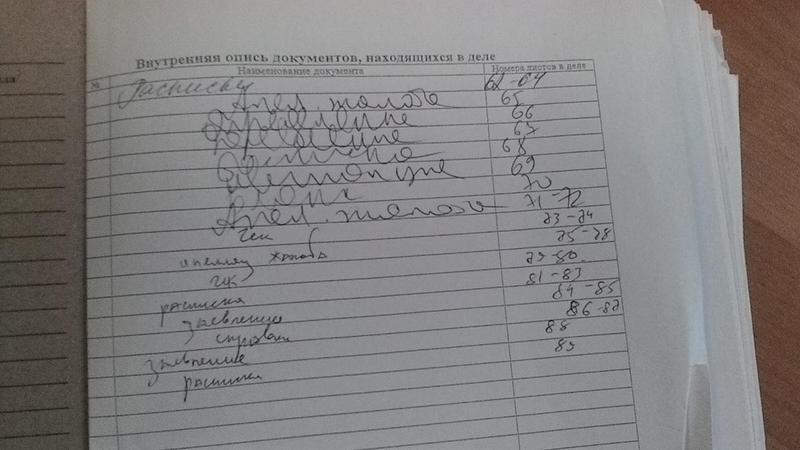 Внутренняя опись документов, находящихся в деле
№ Наименование документа Номера листов в деле
Расписки 62-64
Апел. жалоба 65
66
67
Расписка 68
69
70
Апел. жалоба 71-72
чек 73-74
апелляц жалоба 75-78
чек 79-80
расписка 81-83
заявление 84-85
справки 86-87
заявление 88
расписка 89